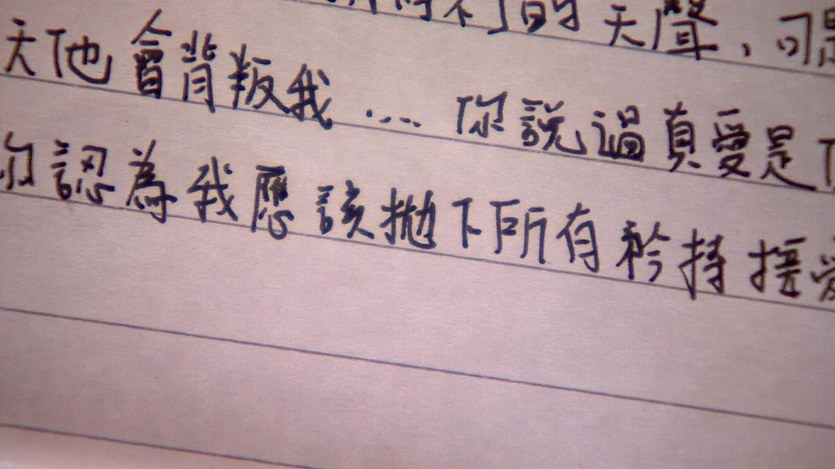 的天聲,可是
天他會背叛我....你說過真愛是
你認為我應該拋下所有矜持接受